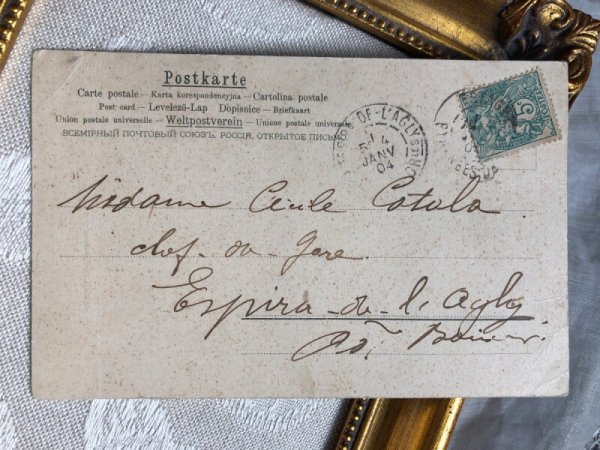 Postkarte
Carte postale – Karta korespondencyjna – Cartolina postale
Post card – Levelező-Lap Dopisnice – Briefkaart
Union postale universelle – Weltpostverein – Union postale universale
ВСЕМІРНЫЙ ПОЧТОВЫЙ СОЮЗЪ. РОССІЯ. ОТКРЫТОЕ ПИСЬМО
DE-L'AGLY
JANV
04
5
Madame Cécile Catala
chef-du-Gare
Espira-de-l'Agly